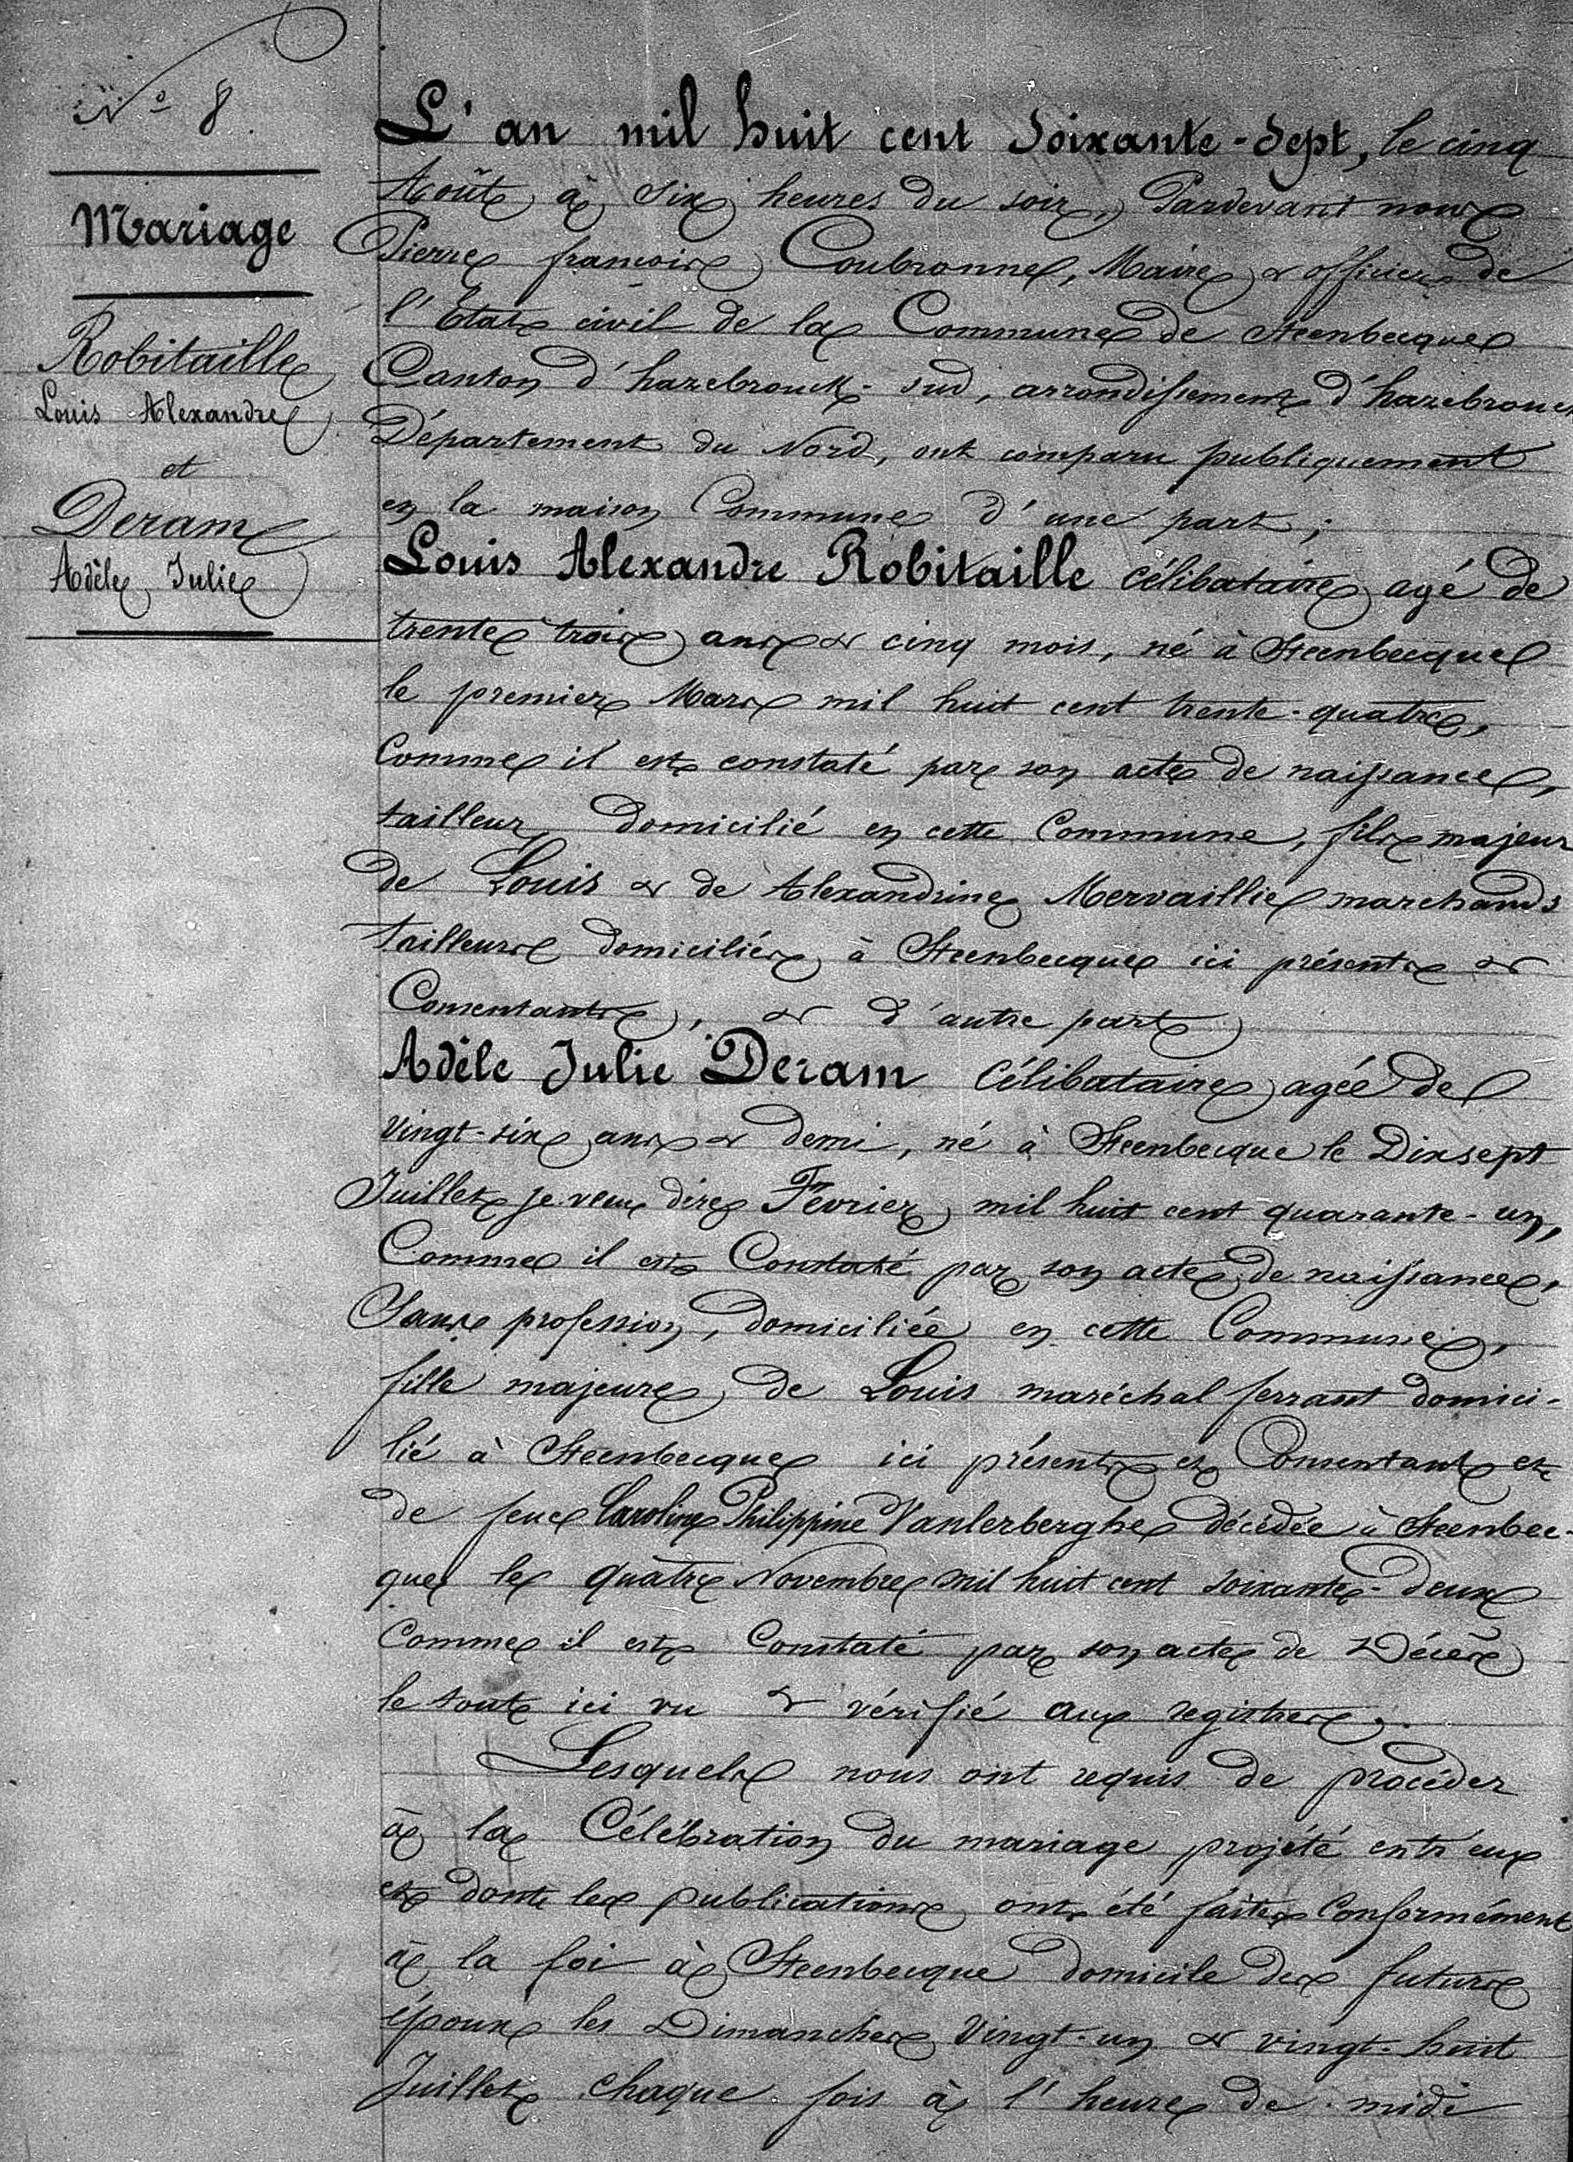 N° 8
Mariage
Robitaille
Louis Alexandre
et
Deram
Adèle Julie
L'an mil huit cent soixante-sept, le cinq
Août à six heures du soir, Pardevant nous
Pierre françois Coubronne, Maire & officier de
l'Etat civil de la Commune de Steenbecque
Canton d'hazebrouck-sud, arrondissement d'hazebrouck
Département du Nord, ont comparu publiquement
en la maison Commune d'une part;
Louis Alexandre Robitaille célibataire agé de
trente trois ans & cinq mois, né à Steenbecque
le premier Mars mil huit cent trente-quatre,
Comme il est constaté par son acte de naissance,
tailleur domicilié en cette Commune, fils majeur
de Louis & de Alexandrine Mervaillie marchands
tailleurs domiciliés à Steenbecque ici présents &
Consentants, & d'autre part
Adèle Julie Deram célibataire agée de
vingt-six ans & demi, né à Steenbecque le Dixsept
Juillet je veux dire Février mil huit cent quarante-un,
Comme il est Constaté par son acte de naissance,
Sans profession, domiciliée en cette Commune,
fille majeure de Louis maréchal ferrant domici-
lié à Steenbecque ici présent et Consentant et
de feue Caroline Philippine Vanlerberghe décédée à Steenbec-
que le quatre Novembre mil huit cent soixante-deux
Comme il est Constaté par son acte de Décès
le tout ici vu & vérifié aux registres.
Lesquels nous ont requis de procéder
à la Célébration du mariage projété entr'eux
et dont les publications ont été faites Conformément
à la foi à Steenbecque domicile des futurs
époux les Dimanches vingt-un & vingt-huit
Juillet chaque fois à l'heure de midi